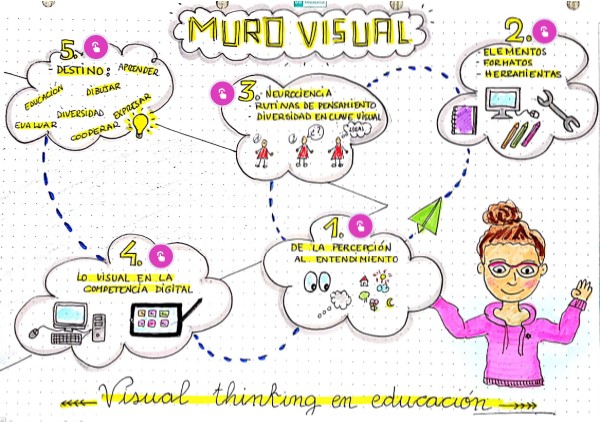 MURO VISUAL
1.
DE LA PERCEPCIÓN
AL ENTENDIMIENTO
2.
- ELEMENTOS
- FORMATOS
- HERRAMIENTAS
3. - NEUROCIENCIA
- RUTINAS DE PENSAMIENTO
DIVERSIDAD EN CLAVE VISUAL
4.
LO VISUAL EN LA
COMPETENCIA DIGITAL
5.
- DESTINO: APRENDER
EDUCACIÓN DIBUJAR
DIVERSIDAD EXPRESAR
EVALUAR COOPERAR
Visual thinking en educación